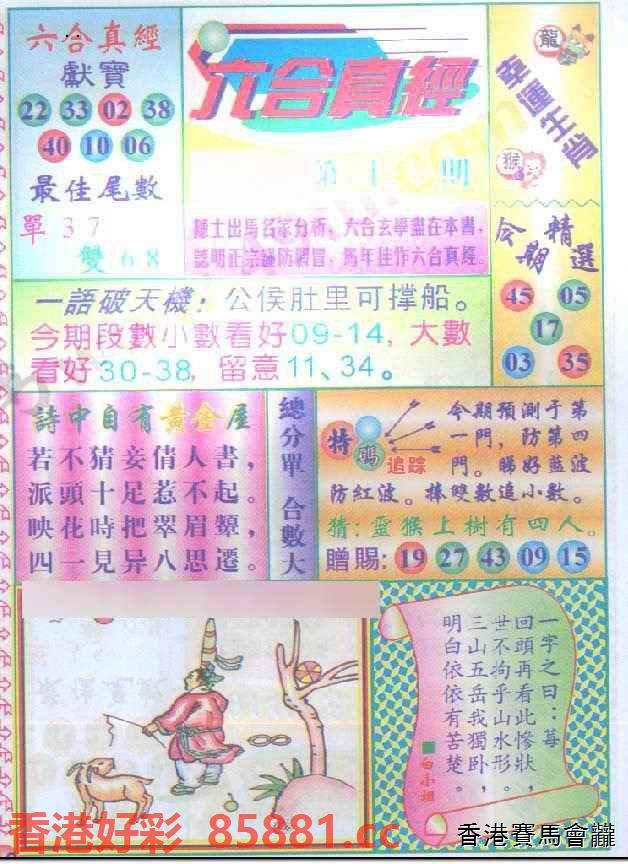 六合真經
獻寶
22 33 02 38
40 10 06
最佳尾數
單 3 7
雙 6 8
六合真經
第 期
龍
幸運生肖
猴
隱士出馬名家分析，六合玄學盡在本書，
認明正宗謹防假冒，馬年佳作六合真經。
今期精選
45 05
17
03 35
一語破天機：公侯肚里可撑船。
今期段數小數看好09-14，大數
看好30-38，留意11、34。
詩中自有黃金屋
若不猜妾倩人書，
派頭十足惹不起。
映花時把翠眉顰，
四一見异八思遷。
總分單 合數大
特碼追踪
今期預測于第
一門，防第四
門。睇好藍波
防紅波。捧雙數追小數。
猜：靈猴上樹有四人。
贈賜：19 27 43 09 15
一字之曰：莓
回頭再看此慘狀，
世不拘乎山水形。
三山五岳我獨卧，
明白依依有苦楚。
白小姐
香港好彩 85881.cc
香港賽馬會